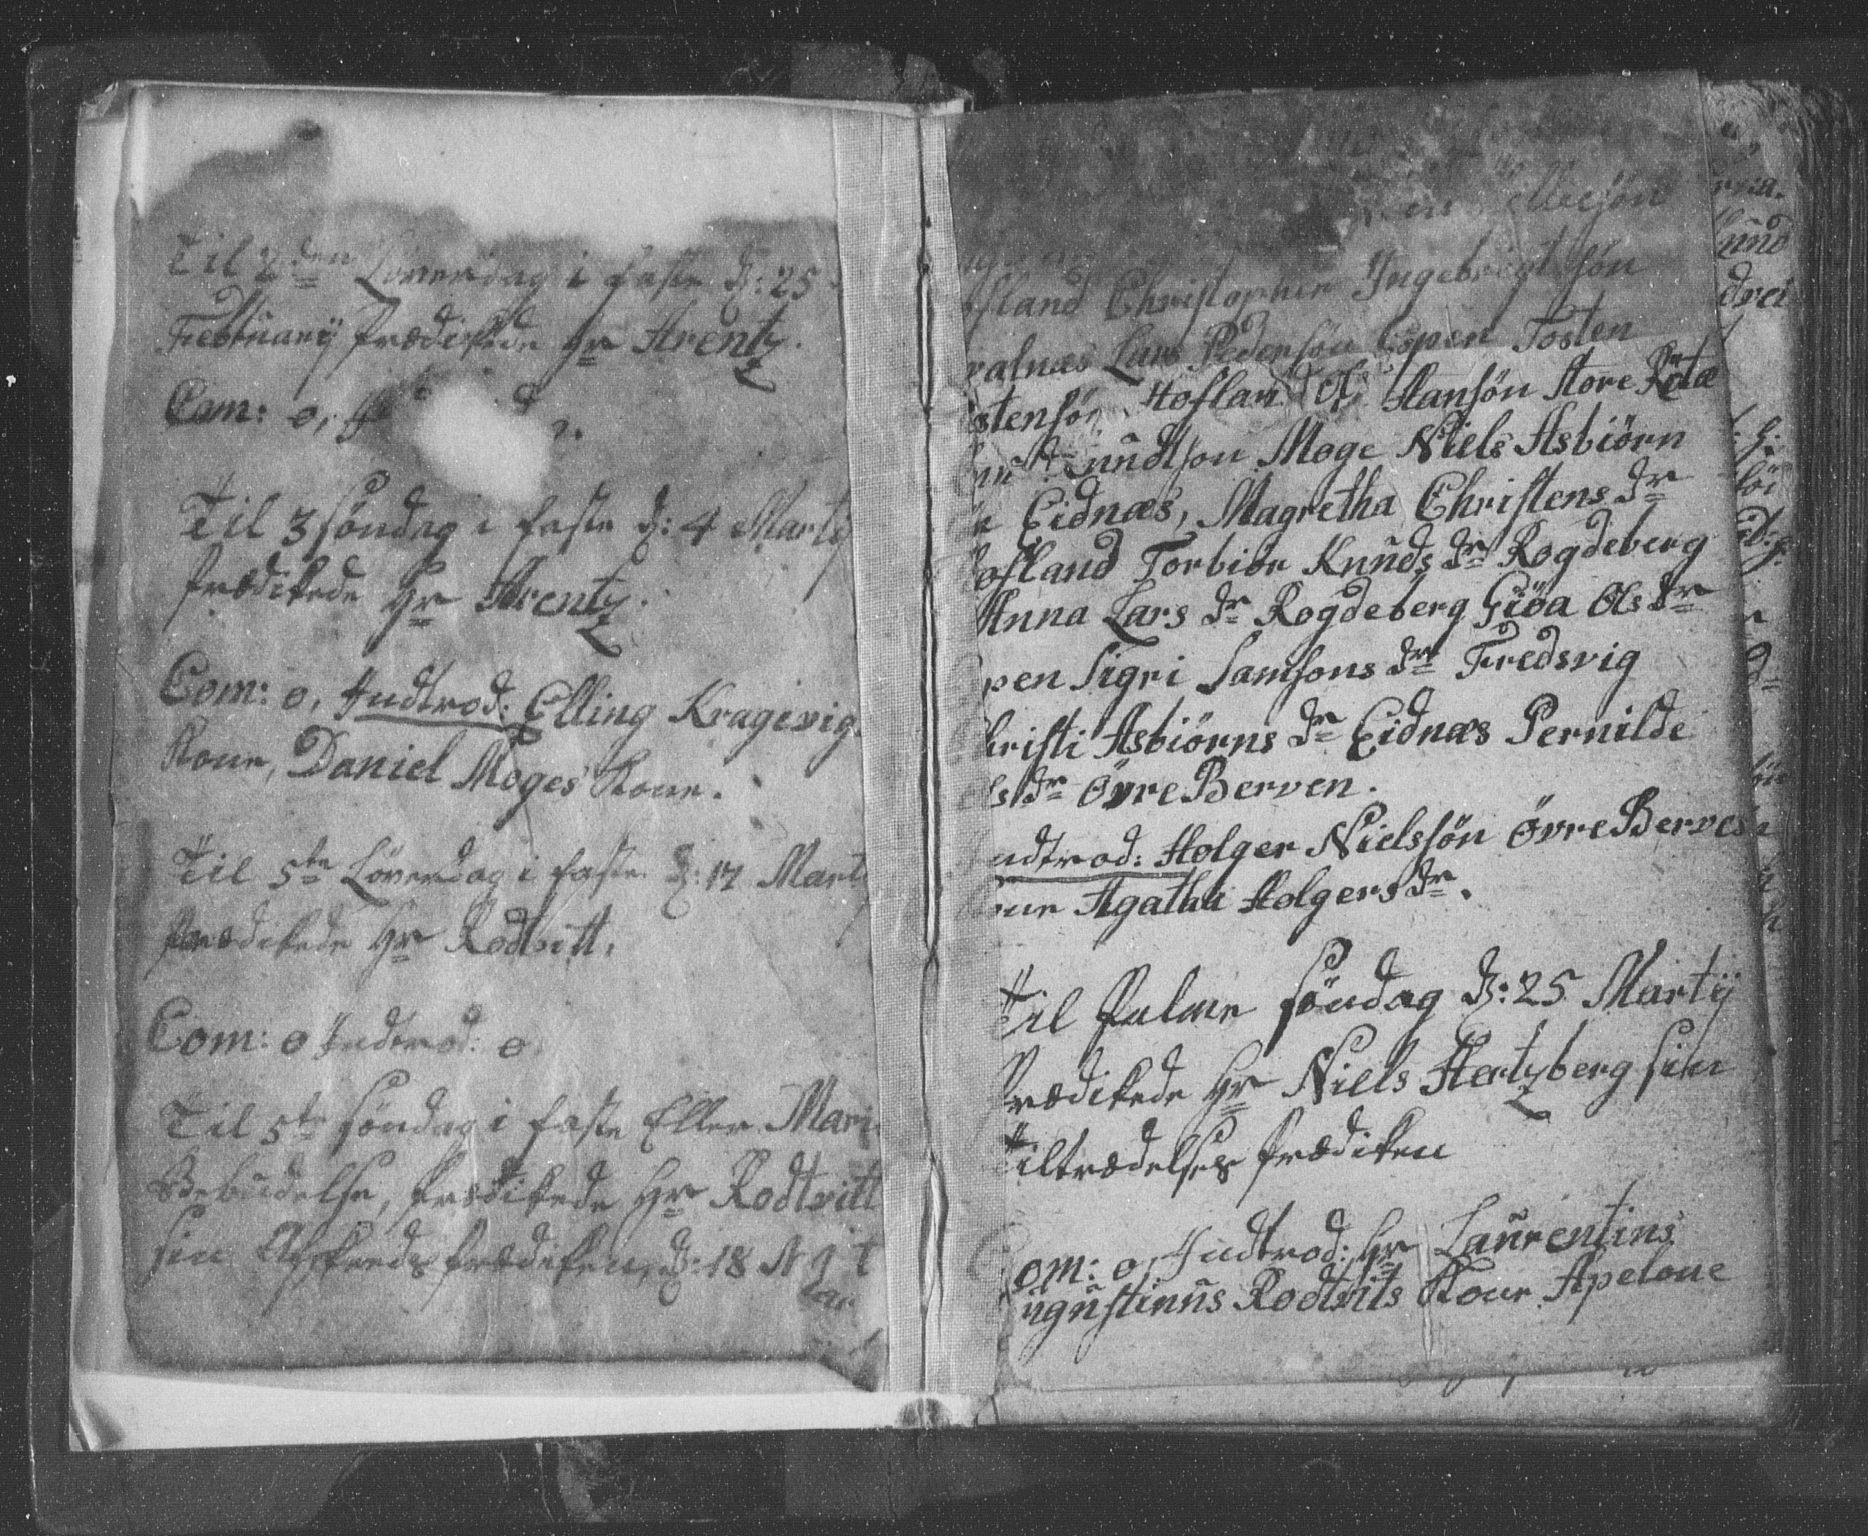 Til 2den Löverdag i faste d: 25
Februarij prædikede Hr Arentz.
Com: 0,
Til 3 söndag i faste d: 4 Martij
prædikede Hr Arentz.
Com: 0, Indtrod: Elling Kragevig
Kone, Daniel Moges Kone.
Til 5te Löverdag i faste d: 17 Martij
prædikede Hr Rodtvitt.
Com: 0 Indtrod: 0
Til 5te söndag i faste Eller Mari
Bebudelse, prædikede Hr Rodtvitt
sin Afskeds prædiken, d: 18
ofland Christopher Ingebrigt sön
valnæs Lars Pedersön Espen Tosten
stensön Hofland Ol Hansön Store Røtæ
Knudtson Moge Niels Asbiörn
Eidnæs, Magretha Christens dr
ofland Torbiör Knuds dr Rogdeberg
Anna Lars dr Rogdeberg Giöa Ols dr
pen Sigri Samsons dr Fredsvig
hristi Asbiörns dr Eidnæs Pernilde
ls dr Övre Berven.
ndtrod: Holger Nielssön Övre Berven
one Agatha Holgers dr.
Til Palme söndag d: 25 Martij
Prædikede Hr Niels Hertzberg sin
Tiltrædelses prædiken
Com: 0, Indtrod: Hr Laurentius
ugustinus Rodtvits Kone Apelone